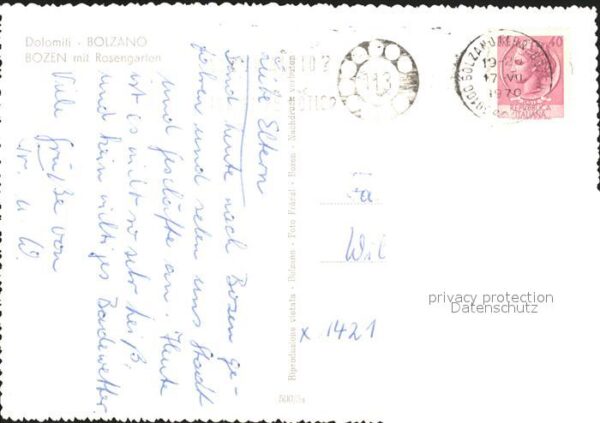 Dolomiti - BOLZANO
BOZEN mit Rosengarten
Eltern
Sind heute nach Bozen ge-
fahren und sehen uns Stadt
und Geschäfte an. Heute
ist es nicht so sehr heiß,
und kein richtiges Badewetter.
Viele Grüße von
u. W
Riproduzione vietata - Bolzano - Foto Fränzl - Bozen - Nachdruck verboten
113
BOLZANO
19-
17 VII
1970
40
REPUBBLICA
ITALIANA
Fa
Wil
x 1421
privacy protection
Datenschutz